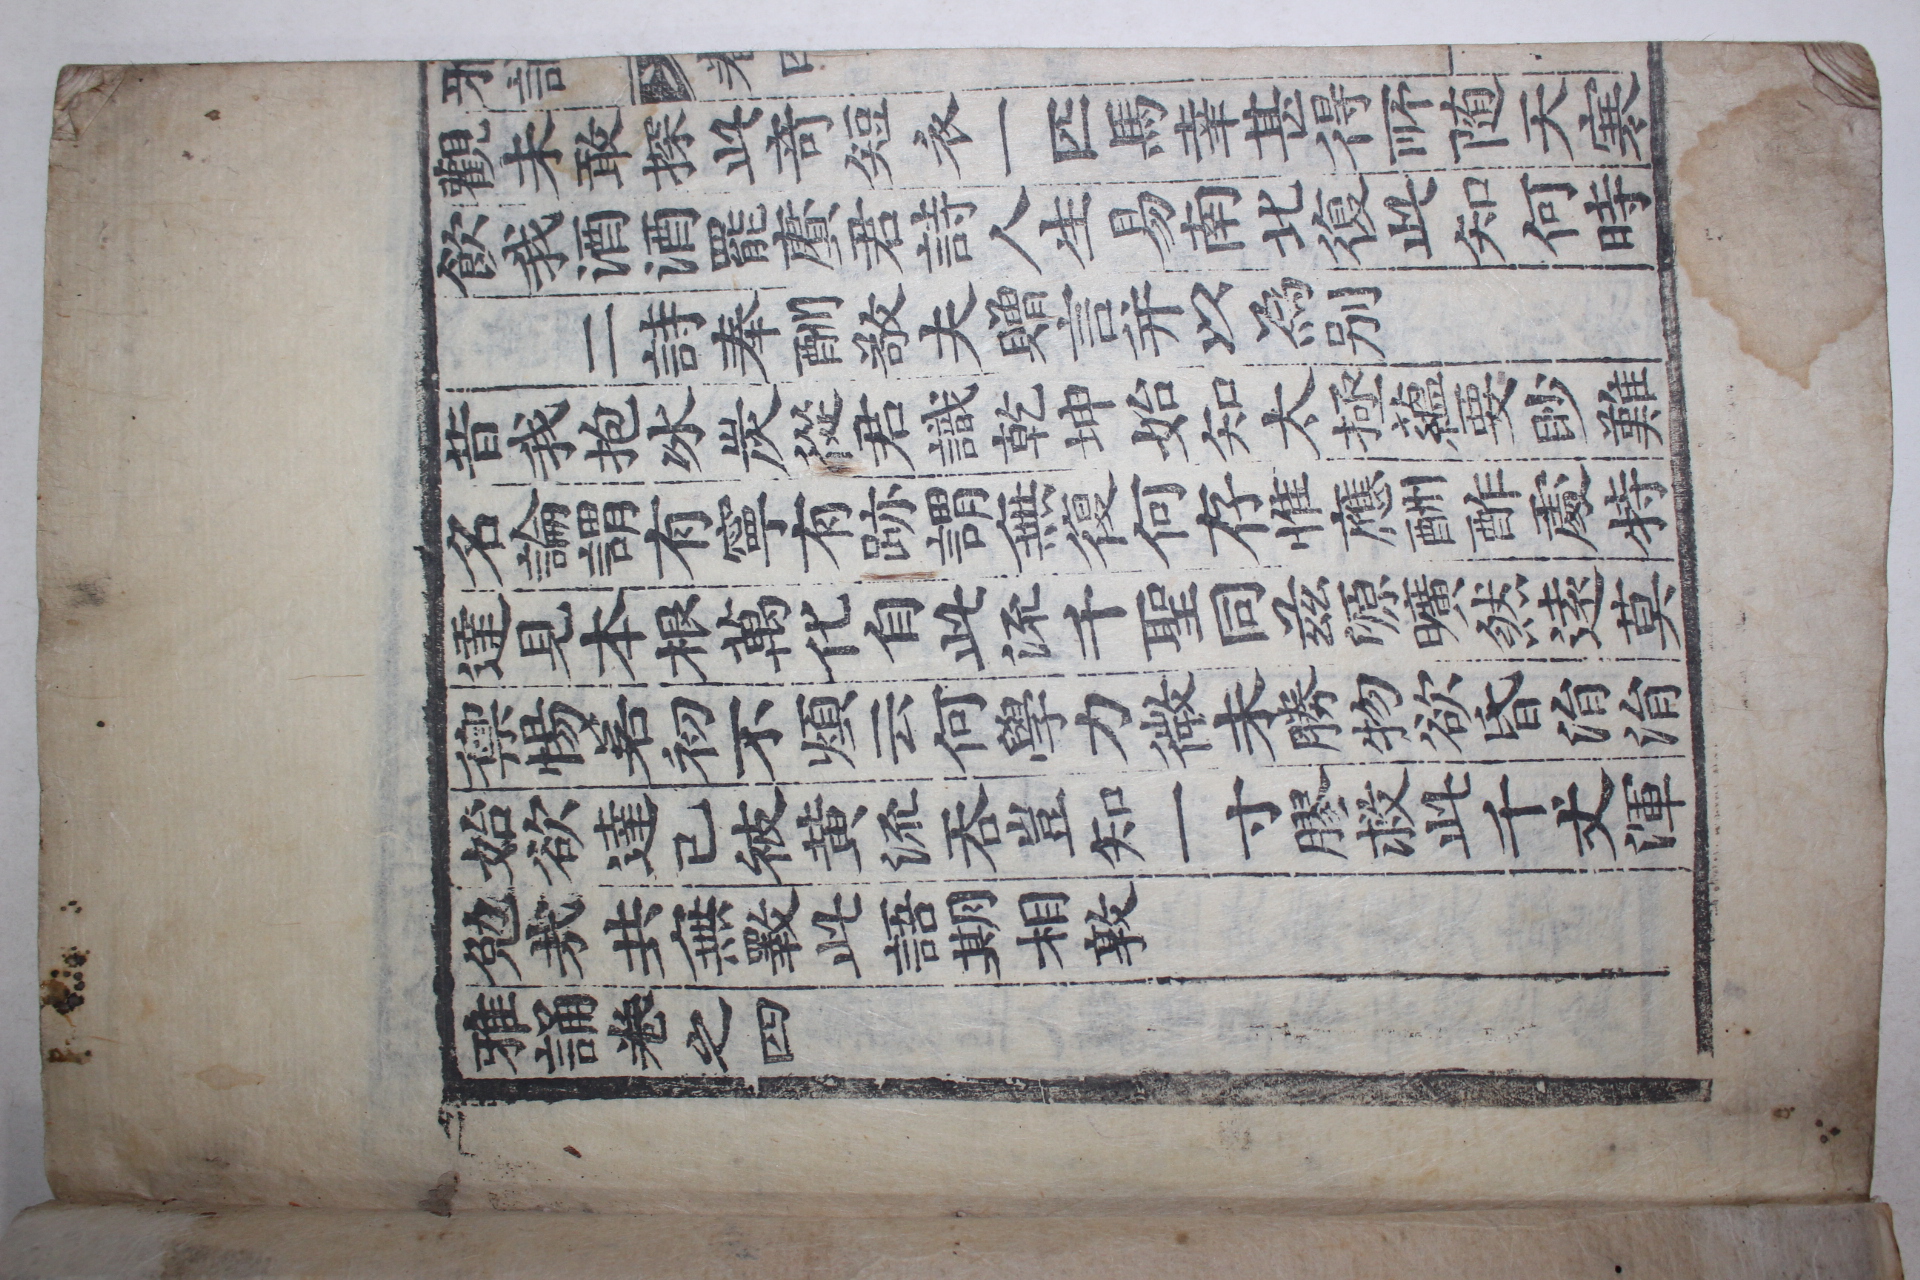 觀未敢探此奇短衣一匹馬幸甚得所随天寒
飲我酒酒罷賡君詩人生易南北復此知何時
二詩奉酬敬夫贈言并以爲別
昔我抱氷炭從君識乾坤始知太極蘊要眇難
名論謂有寧有跡謂無復何存惟應酬酢處特
達見本根萬化自此流千聖同玆源曠然遠莫
禦惕若初不煩云何學力微未勝物欲昏涓涓
始欲達已被黃流呑豈知一寸膠救此千丈渾
勉哉共無斁此語期相敦
雅誦卷之四